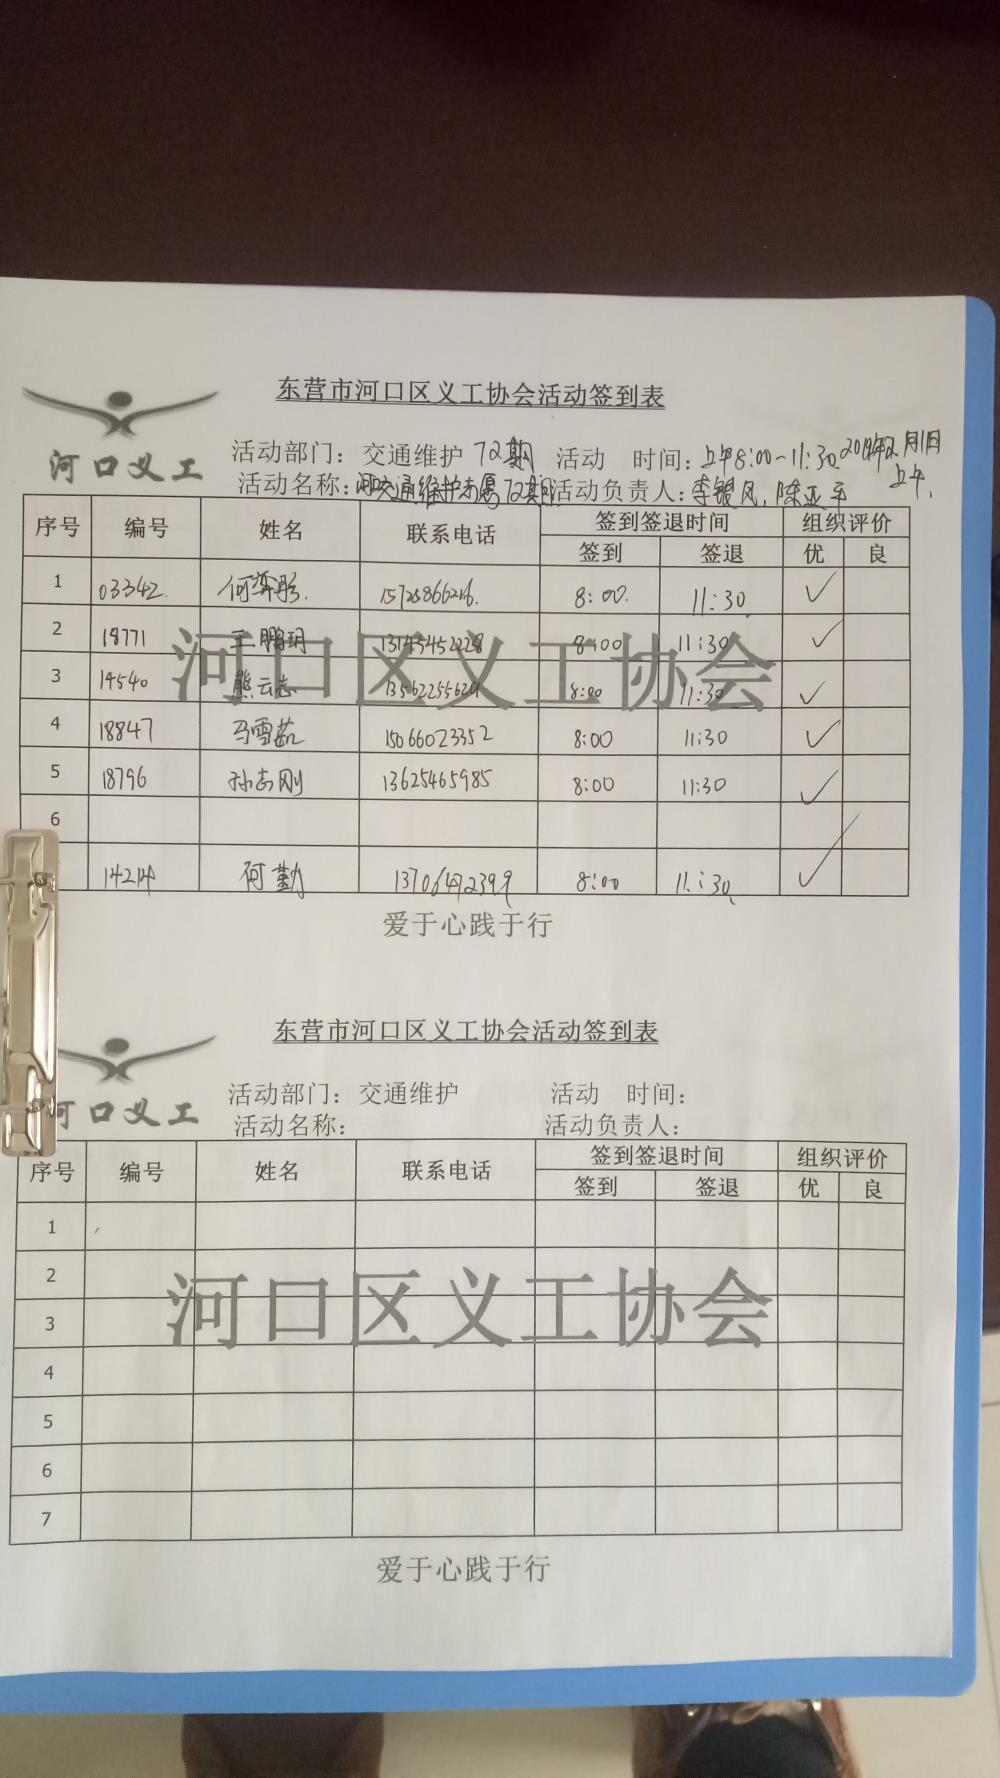 东营市河口区义工协会活动签到表
河口义工
活动部门：交通维护 72期 活动 时间：上午8:00~11:30
上午.
活动名称：交通维护志愿72期 活动负责人：李银凤、陈亚平
序号 编号 姓名 联系电话 签到签退时间 组织评价
签到 签退 优 良
1 03342. 何奔彤. 8:00. 11:30 ✓
2 18771 王鹏玥 13145452228 8:00 11:30 ✓
3 14540 熊云志 8:00 11:30 ✓
4 18847 马雪茹 15066023352 8:00 11:30 ✓
5 18796 孙志刚 13625465985 8:00 11:30 ✓
6
14214 何勤 13706472399 8:00 11:30 ✓
河口区义工协会
爱于心践于行
东营市河口区义工协会活动签到表
河口义工
活动部门：交通维护 活动 时间：
活动名称： 活动负责人：
序号 编号 姓名 联系电话 签到签退时间 组织评价
签到 签退 优 良
1
2
3
4
5
6
7
河口区义工协会
爱于心践于行